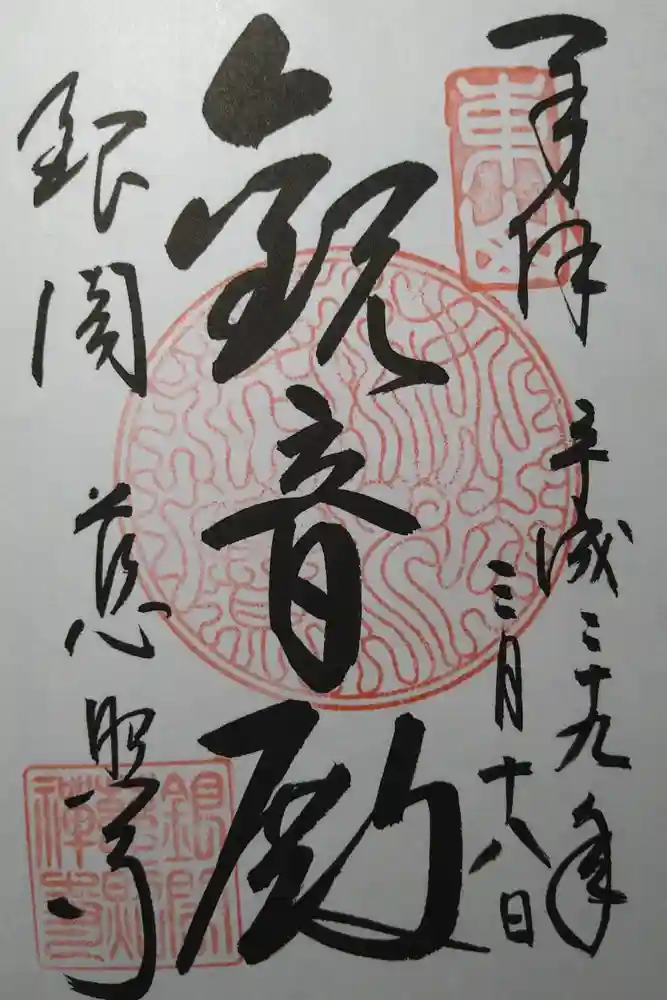 奉拝
東山
平成二十九年
三月十八日
観音殿
銀閣 慈照寺
銀閣
慈照
禪寺